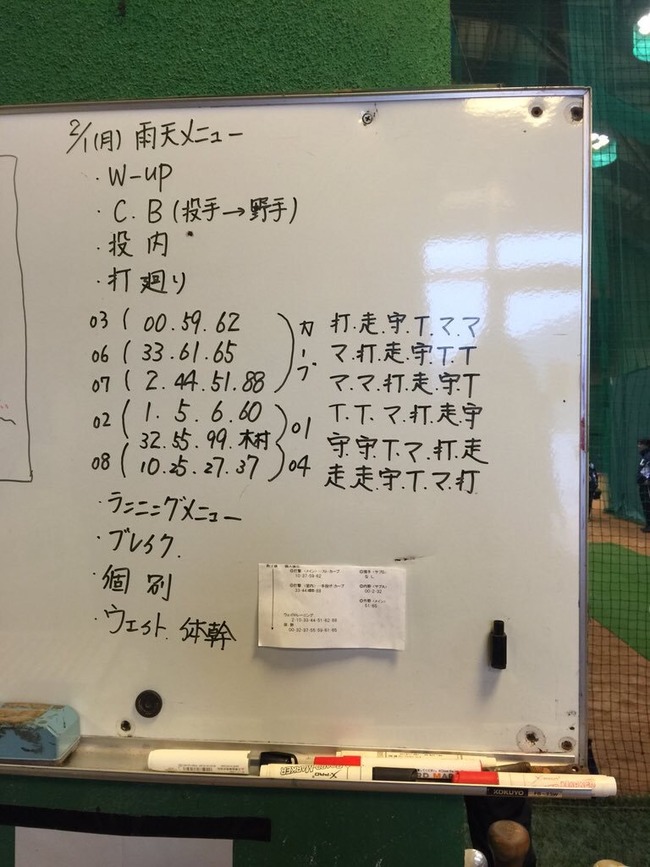 2/1(月) 雨天メニュー
・W-up
・C.B(投手→野手)
・投内
・打廻り
03 ( 00.59.62 ) カーブ 打.走.守.T.マ.マ
06 ( 33.61.65 マ.打.走.守.T.T
07 ( 2.44.51.88 マ.マ.打.走.守.T
02 ( 1.5.6.60 ) 01 T.T.マ.打.走.守
32.55.99.木村 守.守.T.マ.打.走
08 ( 10.25.27.37 04 走.走.守.T.マ.打
・ランニングメニュー
・ブレイク
・個別
・ウェイト.体幹
KOKUYO